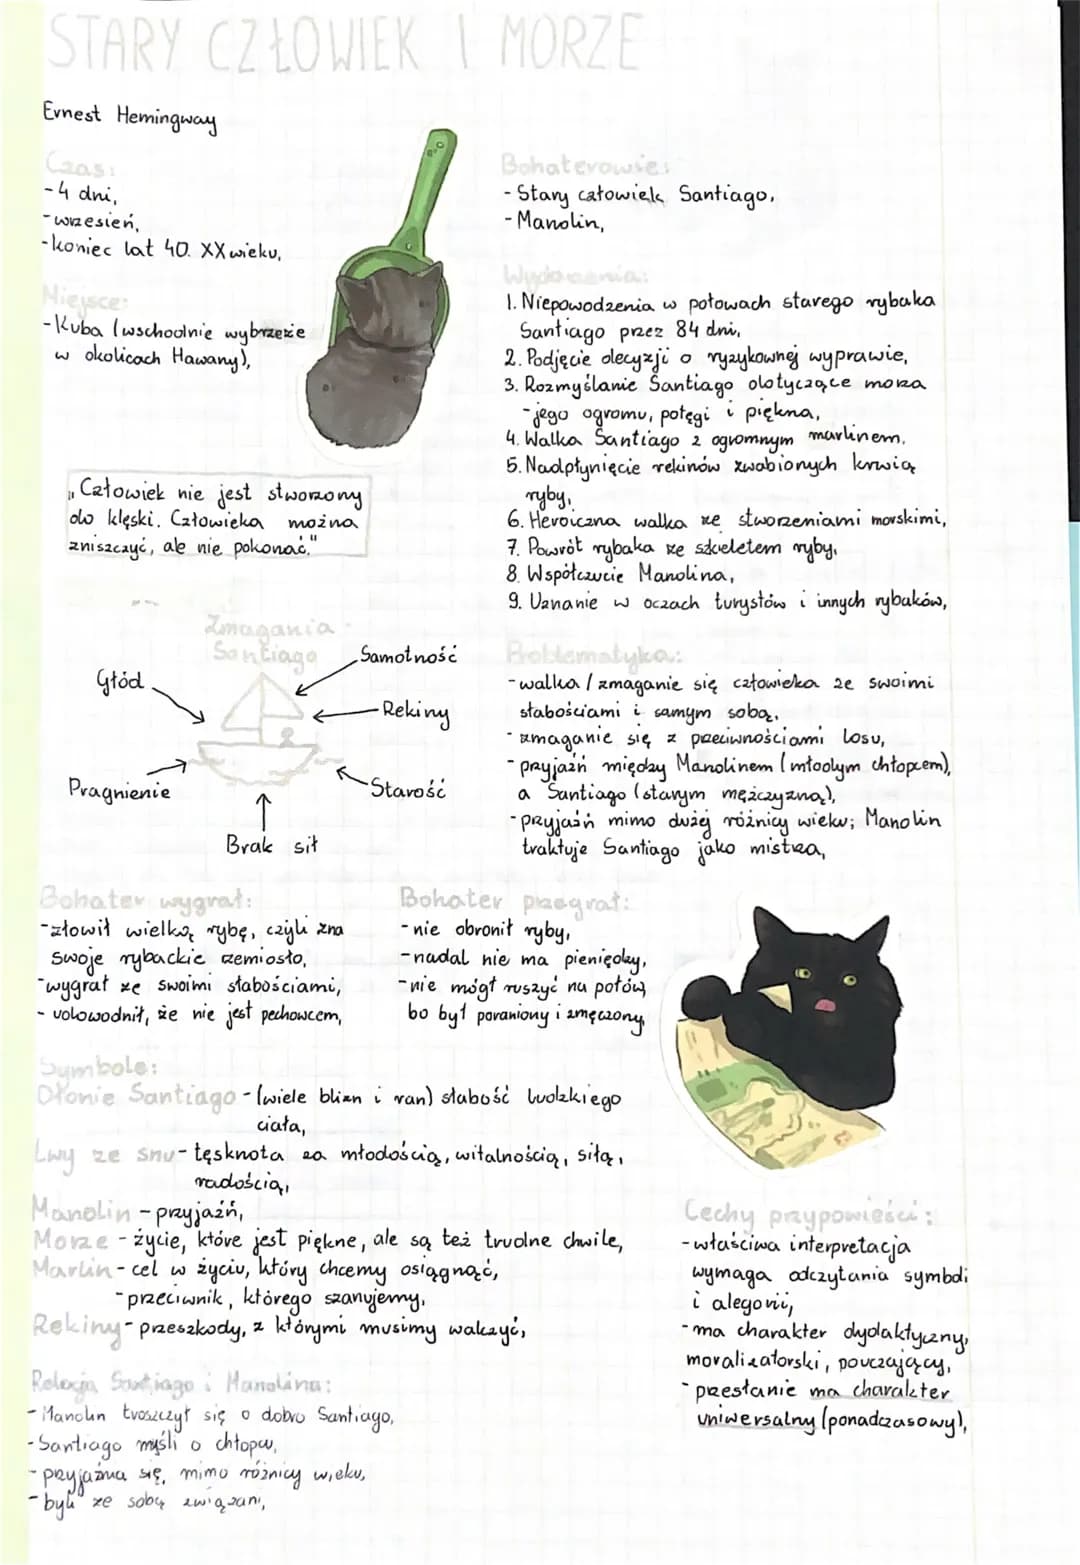 STARY CZŁOWIEK I MORZE
Ernest Hemingway
Czas:
-4 dni,
-wrzesień,
-koniec lat 40. XX wieku,
Miejsce:
-Kuba (wschodnie wybrzeże
w okolicach Hawany),
„Człowiek nie jest stworzony
do klęski. Człowieka można
zniszczyć, ale nie pokonać."
Zmagania
Santiago
Głód
Samotność
Rekiny
Pragnienie
Starość
Brak sił
Bohaterowie:
- Stary człowiek Santiago,
- Manolin,
Wydarzenia:
1. Niepowodzenia w połowach starego rybaka
Santiago przez 84 dni,
2. Podjęcie decyzji o ryzykownej wyprawie,
3. Rozmyślanie Santiago dotyczące morza
-jego ogromu, potęgi i piękna,
4. Walka Santiago z ogromnym marlinem,
5. Nadpłynięcie rekinów zwabionych krwią
ryby,
6. Heroiczna walka ze stworzeniami morskimi,
7. Powrót rybaka ze szkieletem ryby,
8. Współczucie Manolina,
9. Uznanie w oczach turystów i innych rybaków,
Problematyka:
-walka / zmaganie się człowieka ze swoimi
słabościami i samym sobą,
-zmaganie się z przeciwnościami losu,
-przyjaźń między Manolinem (młodym chłopcem),
a Santiago (starym mężczyzną),
-przyjaźń mimo dużej różnicy wieku; Manolin
traktuje Santiago jako mistrza,
Bohater wygrał:
-złowił wielką rybę, czyli zna
swoje rybackie rzemiosło,
-wygrał ze swoimi słabościami,
- udowodnił, że nie jest pechowcem,
Bohater przegrał:
- nie obronił ryby,
-nadal nie ma pieniędzy,
-nie mógł ruszyć na połów,
bo był poraniony i zmęczony,
Symbole:
Dłonie Santiago - (wiele blizn i ran) słabość ludzkiego
ciała,
Lwy ze snu - tęsknota za młodością, witalnością, siłą,
radością,
Manolin - przyjaźń,
Morze - życie, które jest piękne, ale są też trudne chwile,
Marlin - cel w życiu, który chcemy osiągnąć,
-przeciwnik, którego szanujemy,
Rekiny - przeszkody, z którymi musimy walczyć,
Relacja Santiago i Manolina:
- Manolin troszczył się o dobro Santiago,
-Santiago myśli o chłopcu,
- przyjaźnią się, mimo różnicy wieku,
- byli ze sobą związani,
Cechy przypowieści:
-właściwa interpretacja
wymaga odczytania symboli
i alegorii,
-ma charakter dydaktyczny,
moralizatorski, pouczający,
- przesłanie ma charakter
uniwersalny (ponadczasowy),